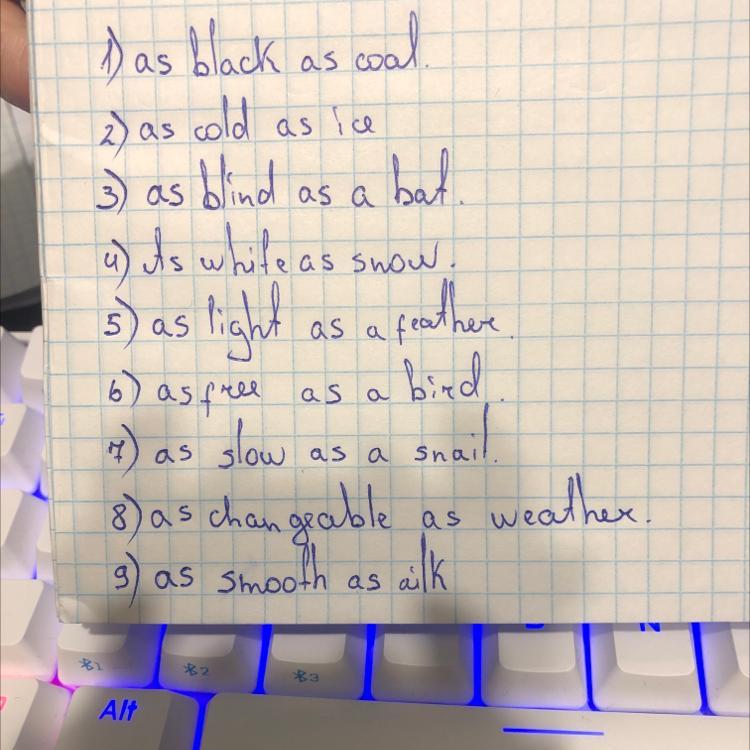 1) as black as coal.
2) as cold as ice
3) as blind as a bat.
4) As white as snow.
5) as light as a feather.
6) as free as a bird.
7) as slow as a snail.
8) as changeable as weather.
9) as smooth as silk
1 2 3
Alt
N